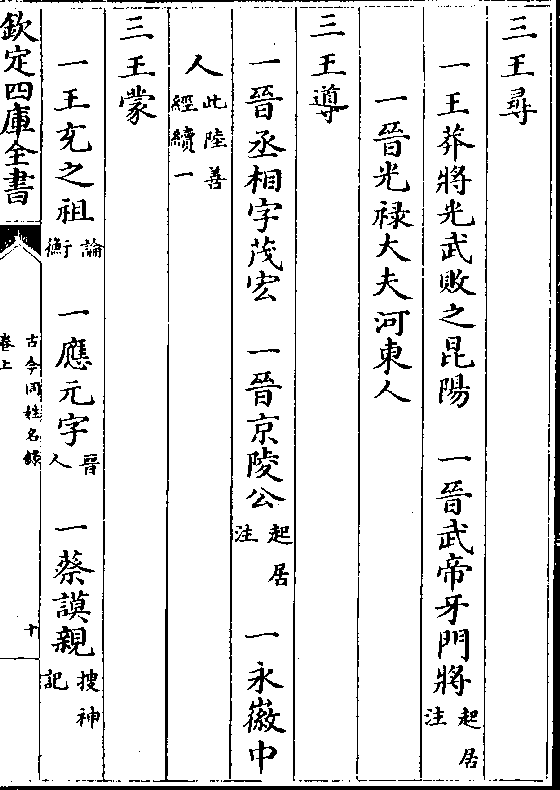 三王尋
一王莽將光武敗之昆陽　一晉武帝牙門將起居注
一晉光禄大夫河東人
三王導
一晉丞相字茂宏　一晉京陵公起居注　一永徽中
人此陸善經續一
三王蒙
一王充之祖論衡　一應元字晉人　一蔡謨親搜神記
欽定四庫全書
古今同姓名錄
卷上
十